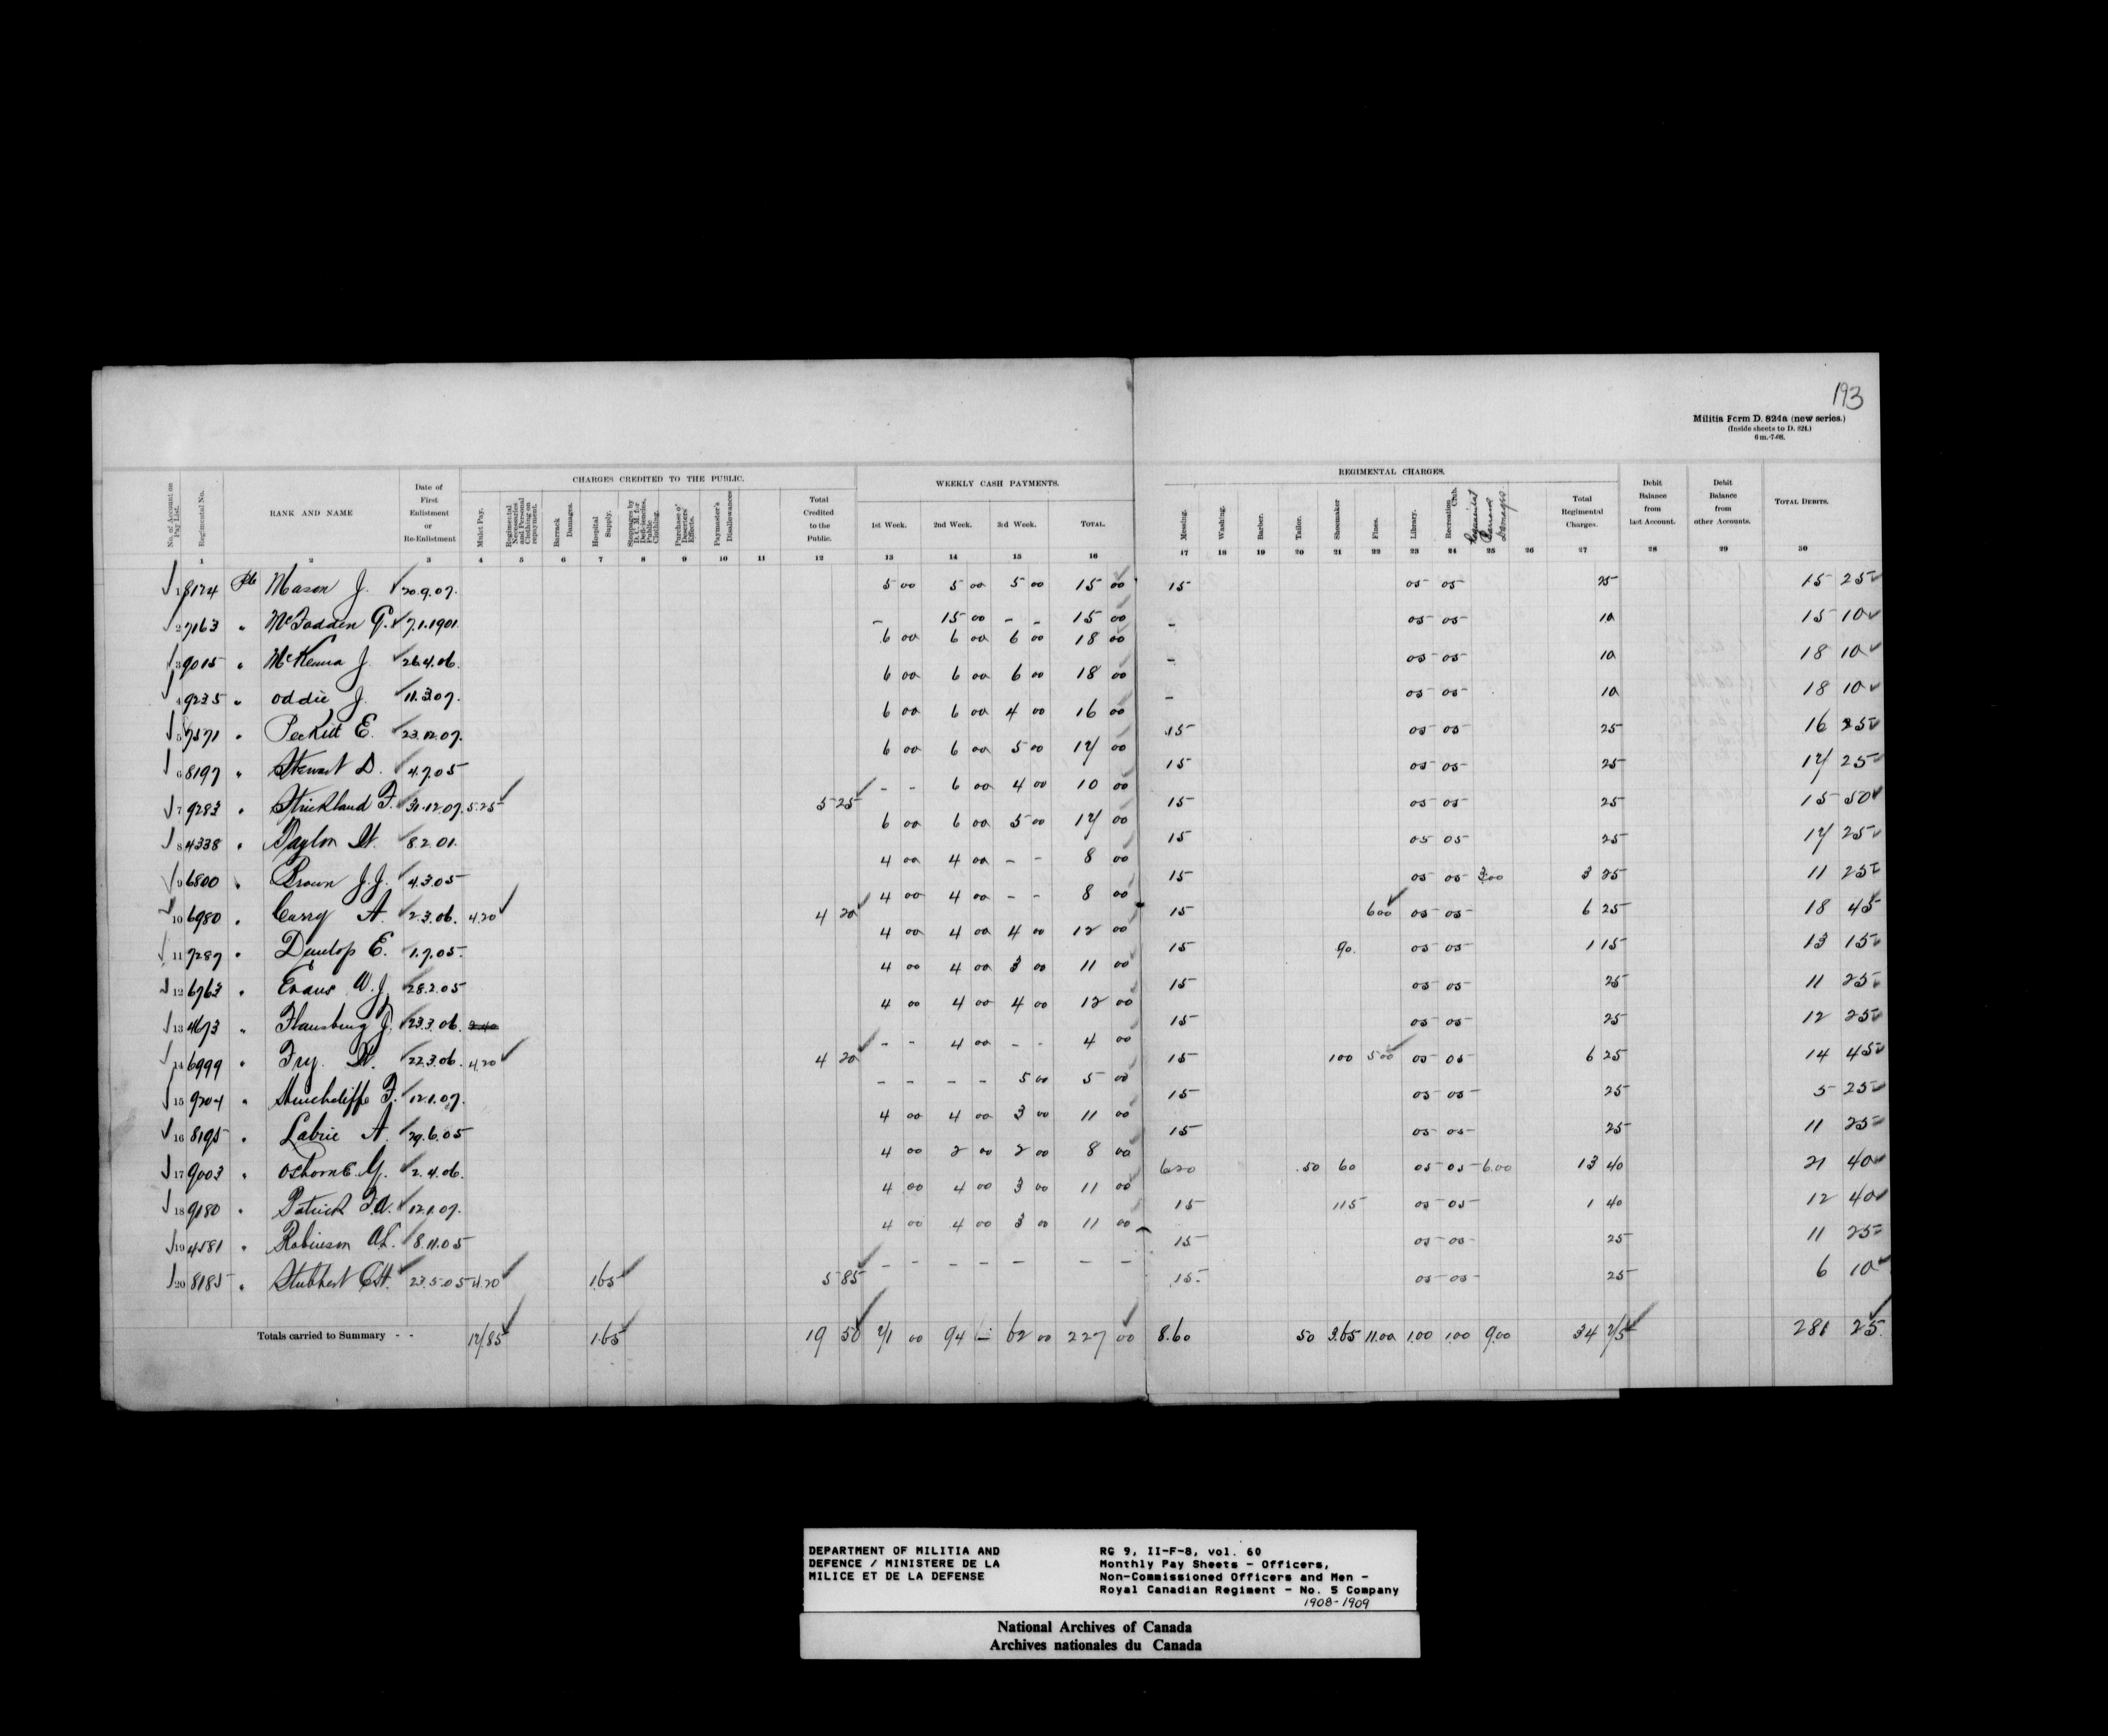 193
Militia Form D. 824a (new series.)
(Inside sheets to D. 824.)
6 m.-7-08.
CHARGES CREDITED TO THE PUBLIC. WEEKLY CASH PAYMENTS. REGIMENTAL CHARGES.
No. of Account on Pay List. Regimental No. RANK AND NAME Date of First Enlistment or Re-Enlistment Mulct Pay. Regimental Necessaries and Personal Clothing on repayment. Barrack Damages. Hospital Supply. Stoppages by D.C.M. for Deficiencies, Public Clothing. Purchase of Deserters' Effects. Paymaster's Disallowances Total Credited to the Public. 1st Week. 2nd Week. 3rd Week. TOTAL. Messing. Washing. Barber. Tailor. Shoemaker Fines. Library. Recreation Club. Regimental Barrack Damages Total Regimental Charges. Debit Balance from last Account. Debit Balance from other Accounts. TOTAL DEBITS.
1 2 3 4 5 6 7 8 9 10 11 12 13 14 15 16 17 18 19 20 21 22 23 24 25 26 27 28 29 30
1 8124 Pte Mason J. 20.9.07. 5 00 5 00 5 00 15 00 15 05 05 25 15 25
2 7163 " McFadden G. 7.1.1901 - 15 00 - - 15 00 - 05 05 10 15 10
3 9015 " McKenna J. 26.4.06. 6 00 6 00 6 00 18 00 - 05 05 10 18 10
4 9235 " Oddie J. 11.3.07. 6 00 6 00 6 00 18 00 - 05 05 10 18 10
5 7571 " Peckitt E. 23.12.07. 6 00 6 00 4 00 16 00 15 05 05 25 16 25
6 8197 " Stewart D. 4.7.05 6 00 6 00 5 00 17 00 15 05 05 25 17 25
7 9283 " Strickland F. 31.12.07 5.25 5 25 - - 6 00 4 00 10 00 15 05 05 25 15 50
8 4338 " Taylor W. 8.2.01. 6 00 6 00 5 00 17 00 15 05 05 25 17 25
9 6800 " Brown J.J. 4.3.05 4 00 4 00 - - 8 00 15 05 05 3.00 3 25 11 25
10 6980 " Carry A. 2.3.06. 4.20 4 20 4 00 4 00 - - 8 00 15 6 00 05 05 6 25 18 45
11 7287 " Dunlop E. 1.7.05. 4 00 4 00 4 00 12 00 15 90. 05 05 1 15 13 15
12 6763 " Evans W.J. 28.2.05 4 00 4 00 3 00 11 00 15 05 05 25 11 25
13 4673 " Flansburg J. 23.3.06. 4 00 4 00 4 00 12 00 15 05 05 25 12 25
14 6999 " Fry. W. 22.3.06. 4.20 4 20 - - 4 00 - - 4 00 15 1 00 5 00 05 05 6 25 14 45
15 9204 " Hinchcliffe F. 12.1.07. - - - - 5 00 5 00 15 05 05 25 5 25
16 8195 " Labrie A. 29.6.05 4 00 4 00 3 00 11 00 15 05 05 25 11 25
17 9003 " Osborne G. 2.4.06. 4 00 2 00 2 00 8 00 6 20 .50 60 05 05 6.00 13 40 21 40
18 9180 " Patrick F.W. 12.1.07. 4 00 4 00 3 00 11 00 15 1 15 05 05 1 40 12 40
19 4581 " Robinson A.L. 8.11.05 4 00 4 00 3 00 11 00 15 05 05 25 11 25
20 8185 " Stubbert C.H. 23.5.05 4.20 1.65 5 85 - - - - - - - - 15 05 05 25 6 10
Totals carried to Summary - - 17/85 1.65 19 50 71 00 94 - 62 00 227 00 8.60 50 3.65 11.00 1.00 1.00 9.00 34 75 281 25
DEPARTMENT OF MILITIA AND
DEFENCE / MINISTERE DE LA
MILICE ET DE LA DEFENSE
RG 9, II-F-8, vol. 60
Monthly Pay Sheets - Officers,
Non-Commissioned Officers and Men -
Royal Canadian Regiment - No. 5 Company
1908-1909
National Archives of Canada
Archives nationales du Canada